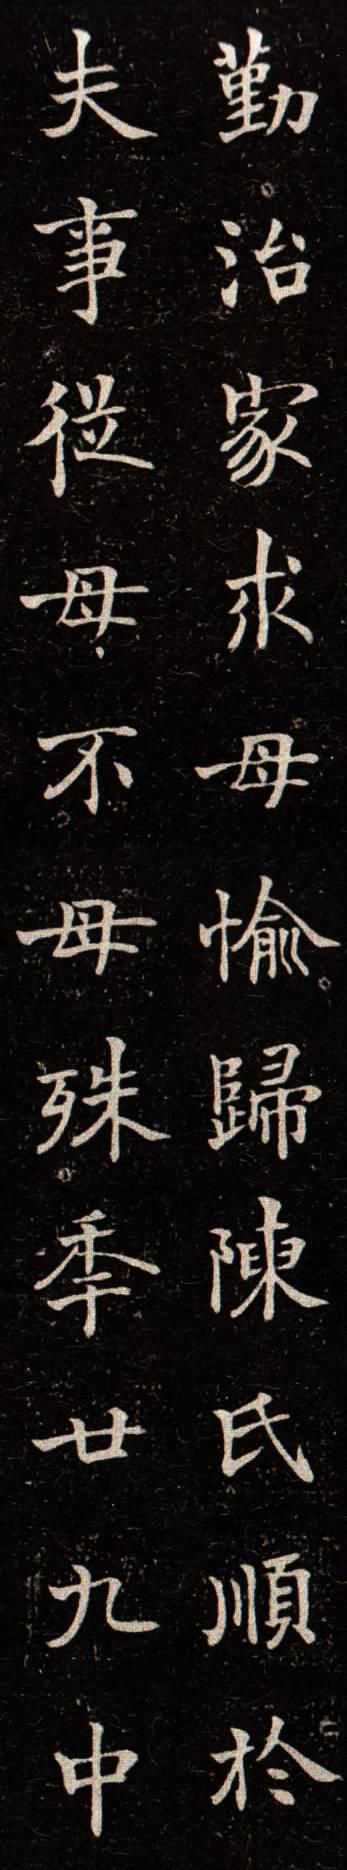 勤治家求母愉歸陳氏順於
夫事從母不母殊秊廿九中